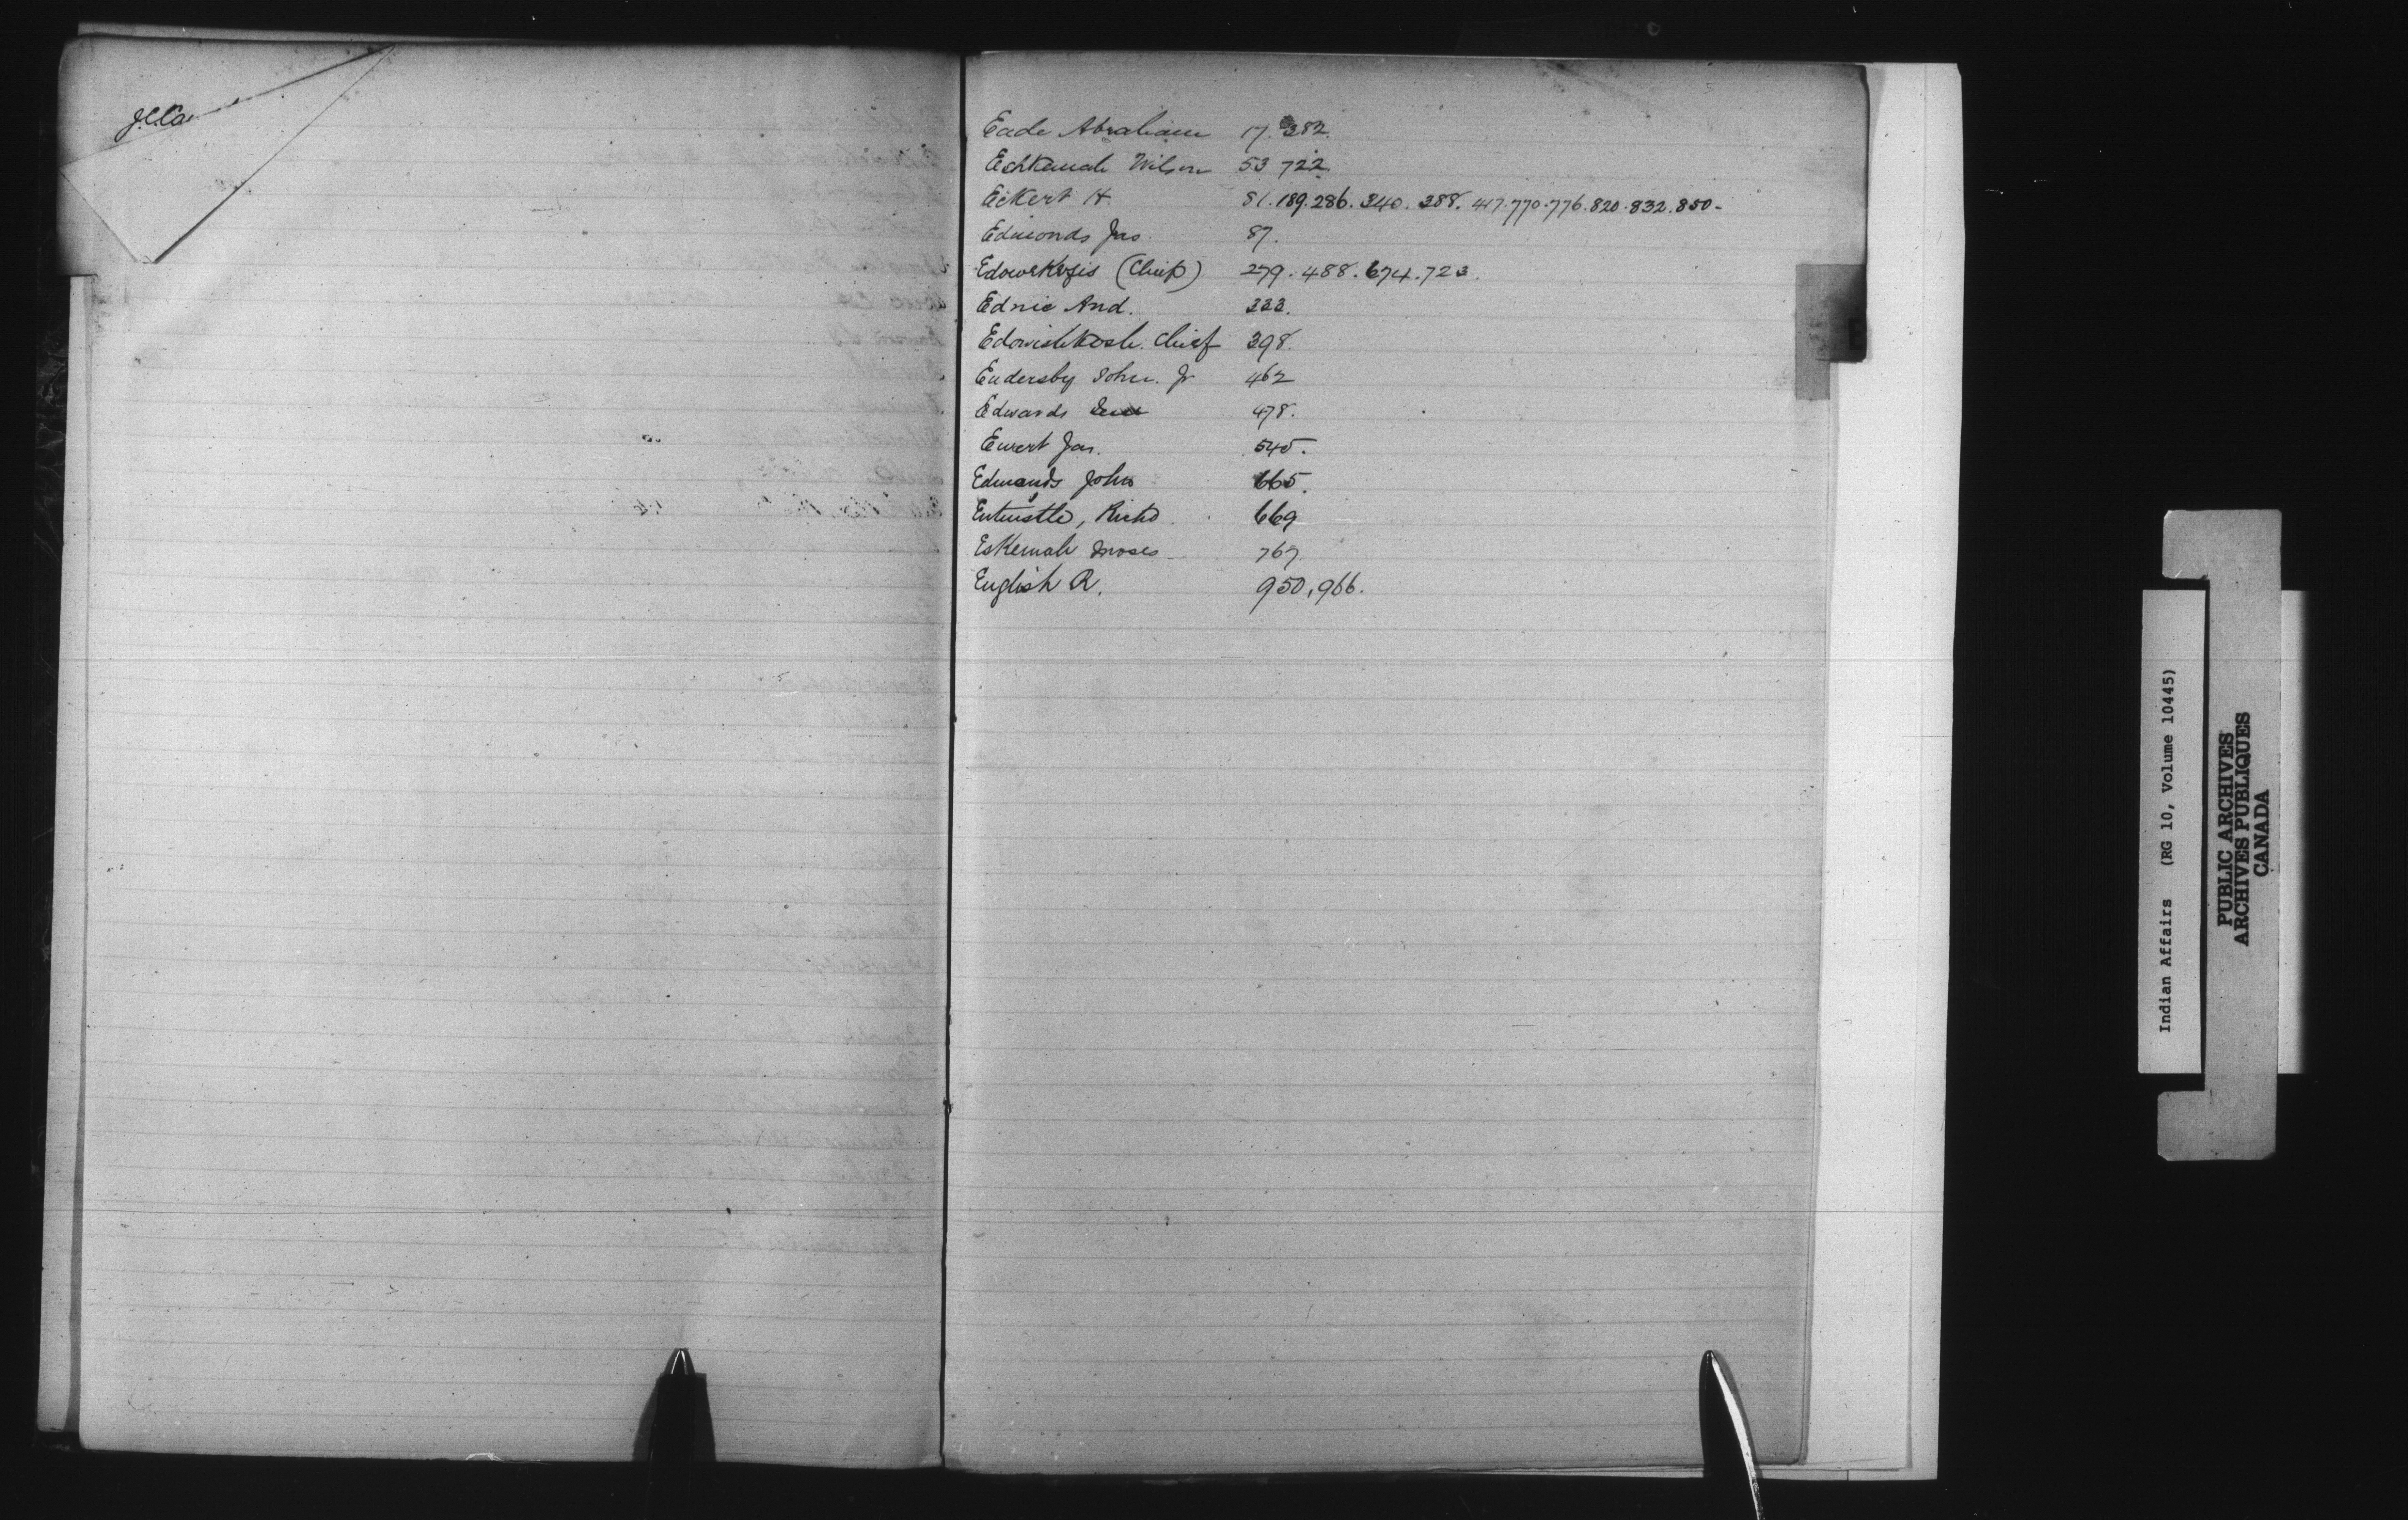 J.C.Co.
Eade Abraham 17. 382.
Eshkemah Wilson 53 722.
Eckert H. 81. 189. 286. 340. 388. 417. 770. 776. 820. 832. 850-
Edmonds Jas. 87.
(Chief) 279. 488. 674. 723.
Ednie And. 333.
Edowishkosh. Chief 398.
Endersby John. Jr 462
Edwards 478.
Ewert Jas. 545.
Edmands John 665.
Entwistle, Richd. 669
Eskemah Moses 767.
English R. 950, 966.
E
Indian Affairs (RG 10, Volume 10445)
PUBLIC ARCHIVES
ARCHIVES PUBLIQUES
CANADA